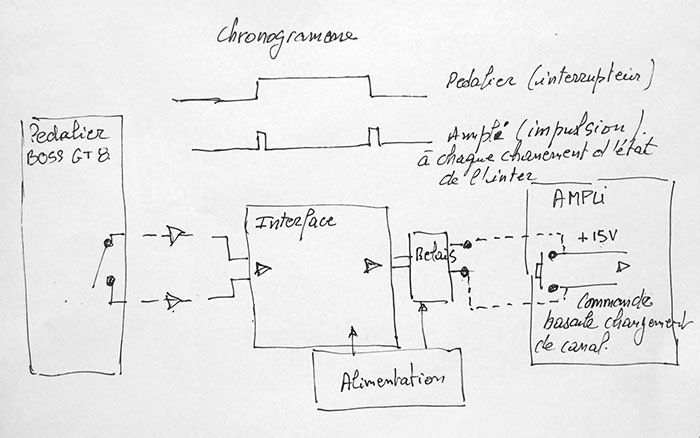 Chronogramme
Pedalier (interrupteur)
Ampli (impulsion).
à chaque chanement d'état
de l'inter
Pedalier
BOSS GT8
Interface
Relais
AMPLI
+15V
Commande
bascule changement
de canal.
Alimentation